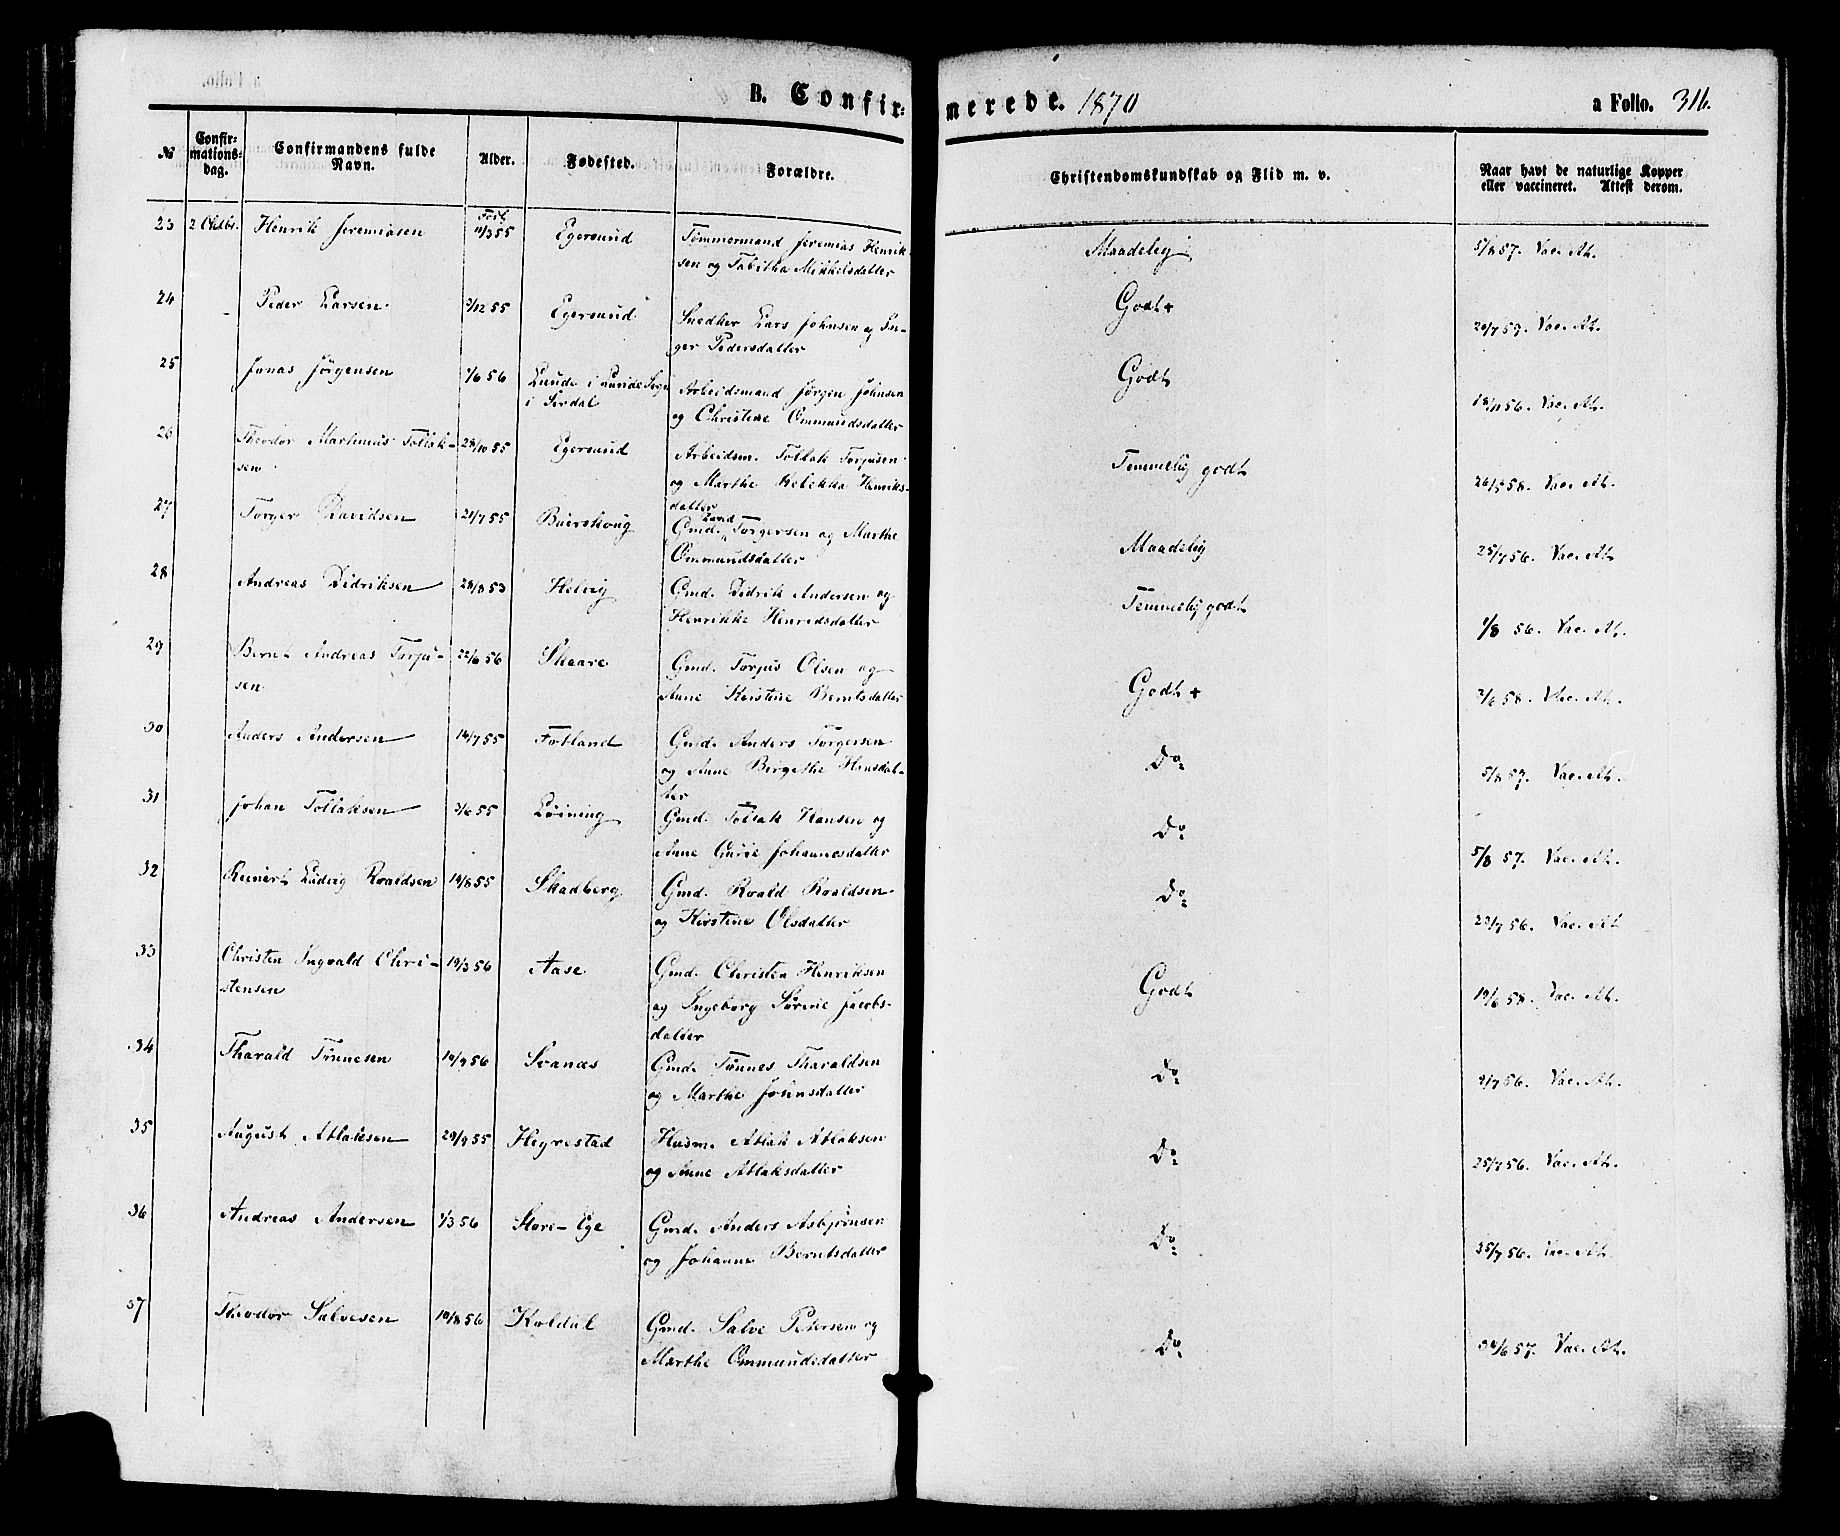 B. Confirmerede. 1870 a Folio. 316.
№ Confirmationsdag. Confirmandens fulde Navn. Alder. Fødested. Forældre. Christendomskundskab og Flid m. v. Naar havt de naturlige Kopper eller vaccineret. Attest derom.
23 2 Oktbr. Henrik Jeremiasen 11/3 55 Egersund Tømmermand Jeremias Henrik- Maadelig 5/8 57. Vac. At.
sen og Tabitha Mikkelsdatter
24 Peder Larsen 2/12 55 Egersund Snedker Lars Johnsen og In- Godt + 20/7 59. Vac. At.
ger Pedersdatter
25 Jonas Jørgensen 1/6 56 Lunde i Lunde Sogn Arbeidsmand Jørgen Johnsen Godt 18/11 56. Vac. At.
i Sirdal og Christine Ommundsdatter
26 Theodor Martinius Tollak- 28/10 55 Egersund Arbeidsm. Tollak Torjusen Temmelig godt 26/5 58. Vac. At.
sen og Marthe Rebekka Henriks-
datter
27 Torger Davidsen 21/7 55 Birkhoug Gmd. David Torgersen og Marthe Maadelig 25/7 56. Vac. At
Ommundsdatter
28 Andreas Didriksen 28/8 53 Helvig Gmd. Didrik Andersen og Temmelig godt 1/8 56. Vac. At.
Henrikke Henriksdatter
29 Bernt Andreas Torju- 22/6 56 Skaare Gmd. Torjus Olsen og Godt + 2/6 58. Vac. At.
sen Anne Kristine Berntsdatter
30 Anders Andersen 14/7 55 Fotland Gmd. Anders Torgersen Do: 5/8 57. Vac. At.
og Anne Birgithe Hansdat-
ter
31 Johan Tollaksen 3/6 55 Løining Gmd. Tollak Hansen og Do: 5/8 57. Vac. At.
Anne Gurie Johannesdatter
32 Reinert Ludvig Roaldsen 14/8 55 Skadberg Gmd. Roald Roaldsen Do: 23/7 56. Vac. At
og Kirstine Olsdatter
33 Christen Ingvald Chri- 19/3 56 Aase Gmd. Christen Henriksen Godt 19/6 58. Vac. At.
stensen og Ingeborg Sørine Jacobs-
datter
34 Tharald Tønnesen 10/9 56 Svanes Gmd. Tønnes Tharaldsen Do: 9/7 56. Vac. At.
og Marthe Johnsdatter
35 August Atlaksen 29/9 55 Hegrestad Husm. Atlak Atlaksen Do: 25/7 56. Vac. At.
og Anne Atlaksdatter
36 Andreas Andersen 1/3 56 Store-Ege Gmd. Anders Asbjørnsen Do: 25/7 56. Vac. At.
og Johanne Berntsdatter
37 Theodor Salvesen 10/8 56 Koldal Gmd. Salve Petersen og Do: 30/6 57. Vac. At.
Marthe Ommundsdatter